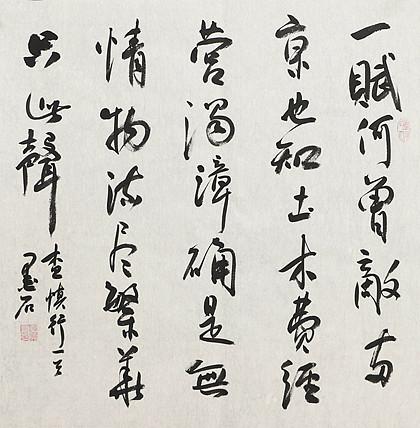 一赋何曾敵两
京也知土木费經
营濁漳確是無
情物流尽繁華
只此聲
查慎行一首
墨石